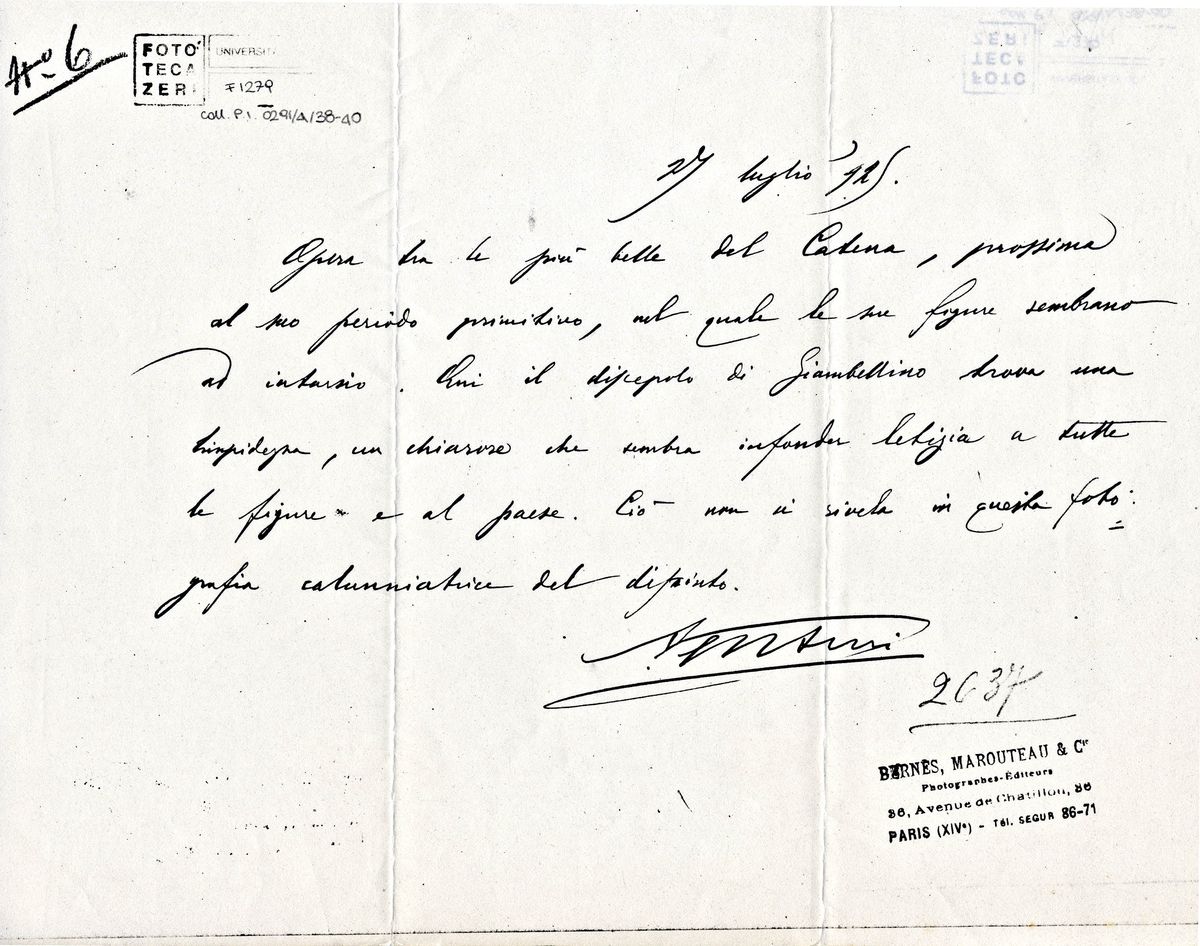 No 6
FOTO
TECA
ZERI
UNIVERSIT
F1279
coll. P.I. 0291/A/38-40
27 luglio 925.
Opera tra le più belle del Catena, prossima
al suo periodo primitivo, nel quale le sue figure sembrano
ad intarsio. Qui il discepolo di Giambellino trova una
limpidezza, un chiarore che sembra infonder letizia a tutte
le figure e al paese. Ciò non si rivela in questa foto=
grafia calunniatrice del dipinto.
AVenturi
2637
BERNÈS, MAROUTEAU & Cie
Photographes-Éditeurs
86, Avenue de Chatillon, 86
PARIS (XIVe) - Tél. SEGUR 86-71